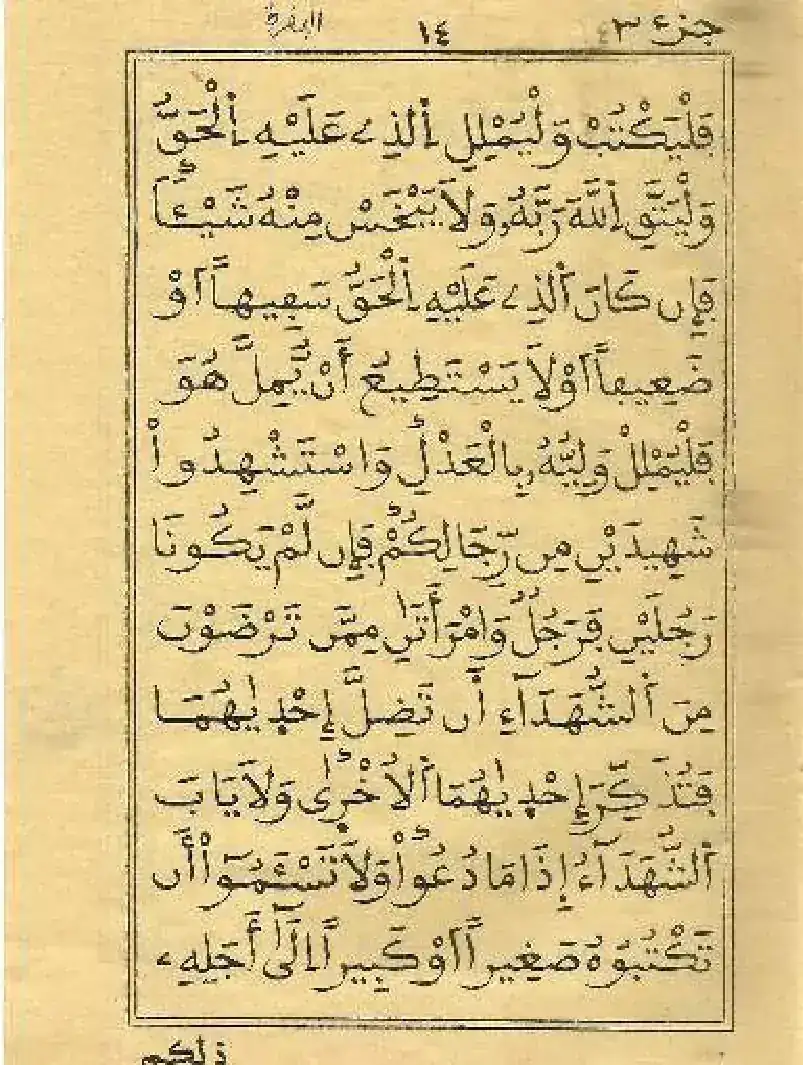 جزء ٣ ١٤ البقرة
فَلْيَكْتُبْ وَلْيُمْلِلِ اِ۬لذِے عَلَيْهِ اِ۬لْحَقُّ
وَلْيَتَّقِ اِ۬للَّهَ رَبَّهُۥ وَلَا يَبْخَسْ مِنْهُ شَيْـٔاً
فَإِن كَانَ اَ۬لذِے عَلَيْهِ اِ۬لْحَقُّ سَفِيهاً اَوْ
ضَعِيفاً اَوْ لَا يَسْتَطِيعُ أَنْ يُّمِلَّ هُوَ
فَلْيُمْلِلْ وَلِيُّهُۥ بِالْعَدْلِ وَاسْتَشْهِدُواْ
شَهِيدَيْنِ مِن رِّجَالِكُمْ فَإِن لَّمْ يَكُونَا
رَجُلَيْنِ فَرَجُلٌ وَامْرَأَتَٰنِ مِمَّن تَرْضَوْنَ
مِنَ اَ۬لشُّهَدَآءِ اَ۬ن تَضِلَّ إِحْدٜيٰهُمَا
فَتُذَكِّرَ إِحْدٜيٰهُمَا اَ۬لُاخْر۪ىٰ وَلَا يَابَ
اَ۬لشُّهَدَآءُ إِذَا مَا دُعُواْ وَلَا تَسْـَٔمُوٓاْ أَن
تَكْتُبُوهُ صَغِيراً اَوْ كَبِيراً اِلَىٰٓ أَجَلِهِۦ
ذلكم